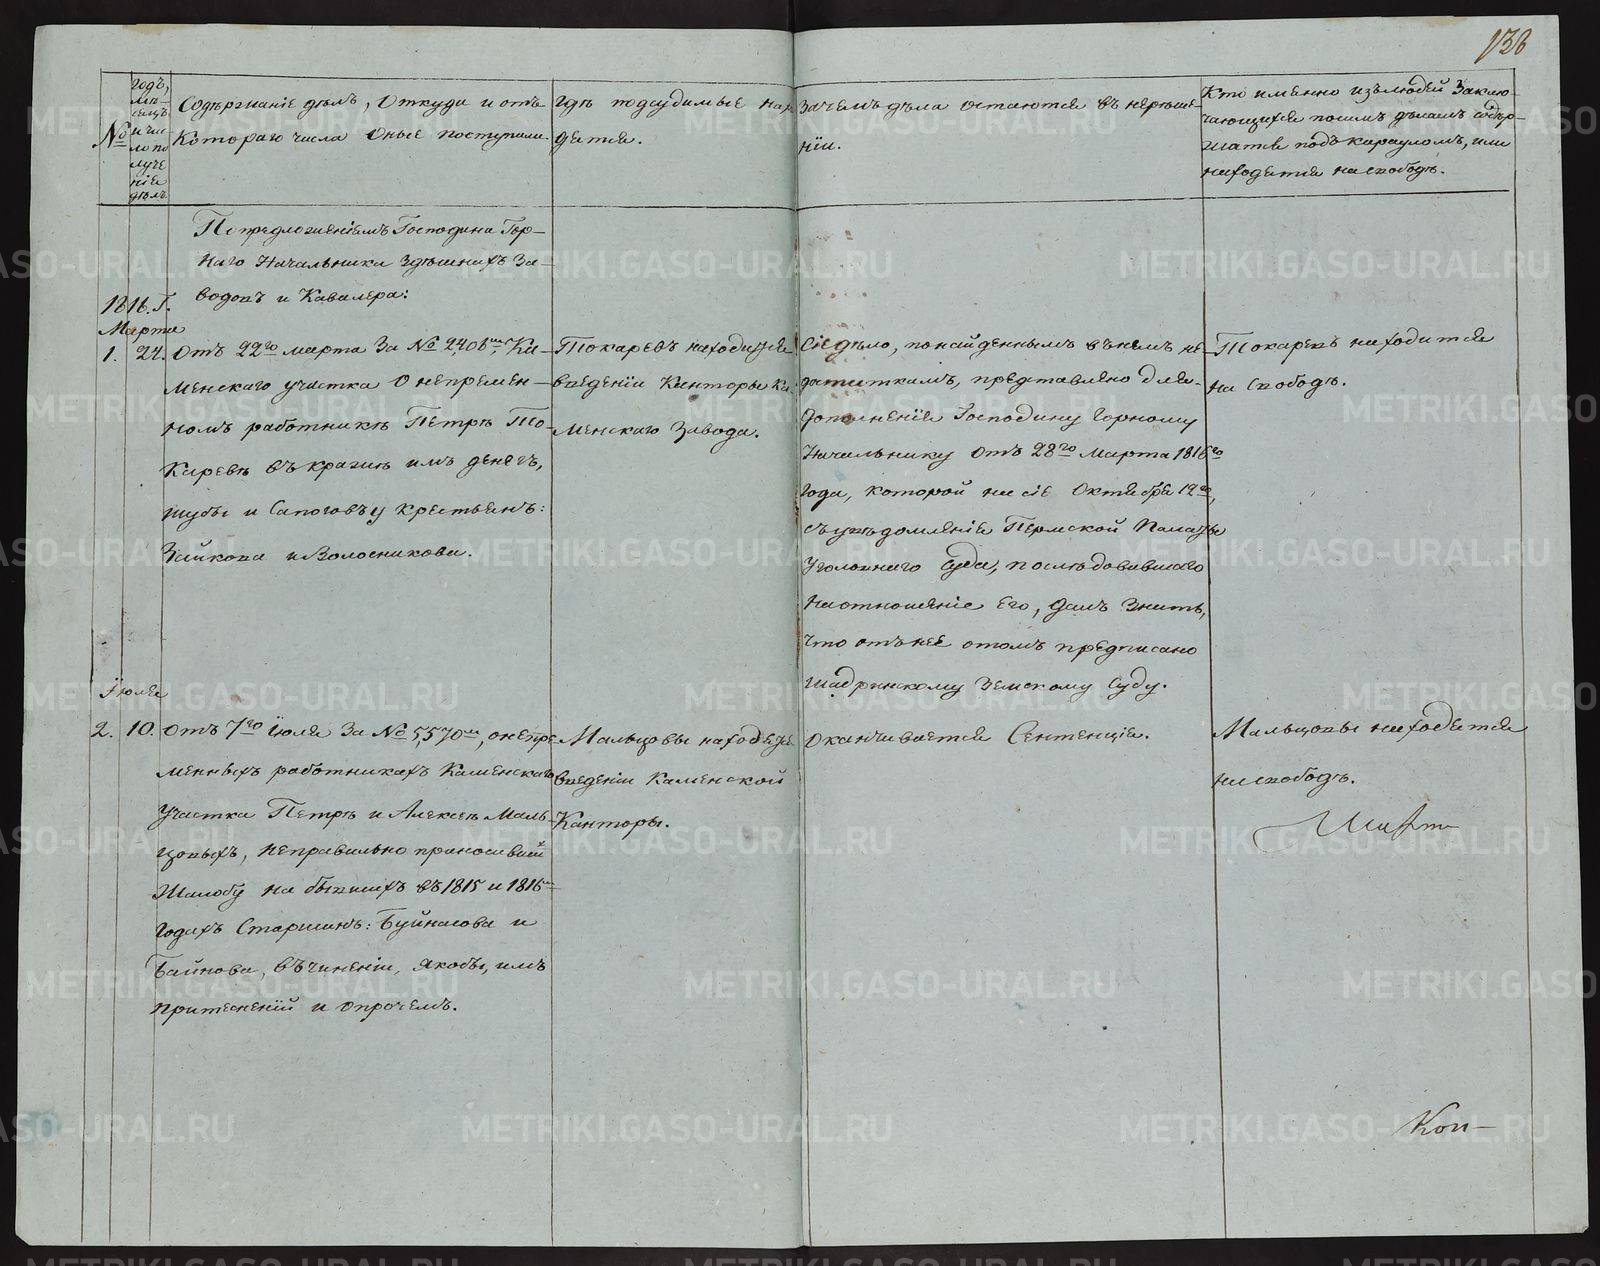 138
№
годъ,
мѣ-
сяцъ
и чи-
сло по
луче
нія
дѣлъ
Содержаніе дѣлъ, Откуда и отъ
Котораго числа Оные поступили.
Гдѣ подсудимые нахо
дятся.
Зачемъ дѣла остаются въ нерѣше-
ніи.
Кто именно изъ людей Заклю-
чающихся посимъ дѣламъ содер-
жатся подъ карауломъ, или
находятся насвободѣ.
Попредложеніемъ Господина Гор-
наго Начальника Здѣшнихъ За-
водовъ и Кавалера:
1816. Г.
Марта
1. 24. Отъ 22го марта За № 2406м, Ка-
менскаго участка О непремен-
номъ работникѣ Петрѣ То-
Каревѣ въ кражѣ имъ денегъ,
шубы и Сапоговъ у крестьянъ:
Зайкова и Волосникова.
Токаревъ находится
введеніи Канторы Ка
менскаго Завода.
Сіе дѣло, понайденнымъ въ немъ не-
достаткамъ, представлено для-
дополненія Господину Горному
Начальнику отъ 28го Марта 1816го
Года, которой на сіе Октября 12го,
съ увѣдомленіе Пермской Палаты
Уголовнаго Суда, последовавшаго
наотношеніе Его, далъ Знать,
что отъ нее отомъ предписано
Шадринскому Земскому Суду.
Токаревъ находится
на Свободѣ.
Іюля
2. 10. отъ 7го Іюля За № 5,570м, онепре
менныхъ работникахъ Каменскаго
Участка Петрѣ и Алексеѣ Маль-
цовыхъ, неправильно приносившей
Жалобу на бывшихъ въ 1815 и 1816м
годахъ Старшинъ: Буйносова и
Байнова, въ чиненіи, якобы, имъ
притесненій и опрочемъ.
Мальцовы находятся
введеніи Каменской
Канторы.
Оканчивается Сентенція.
Мальцовы находятся
насвободѣ.
Кон-
METRIKI.GASO-URAL.RU